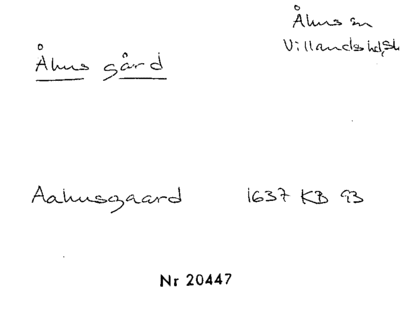 Åhus sn
Villands hd, Sk
Åhus gård
Aahusgaard 1637 KB 93
Nr 20447